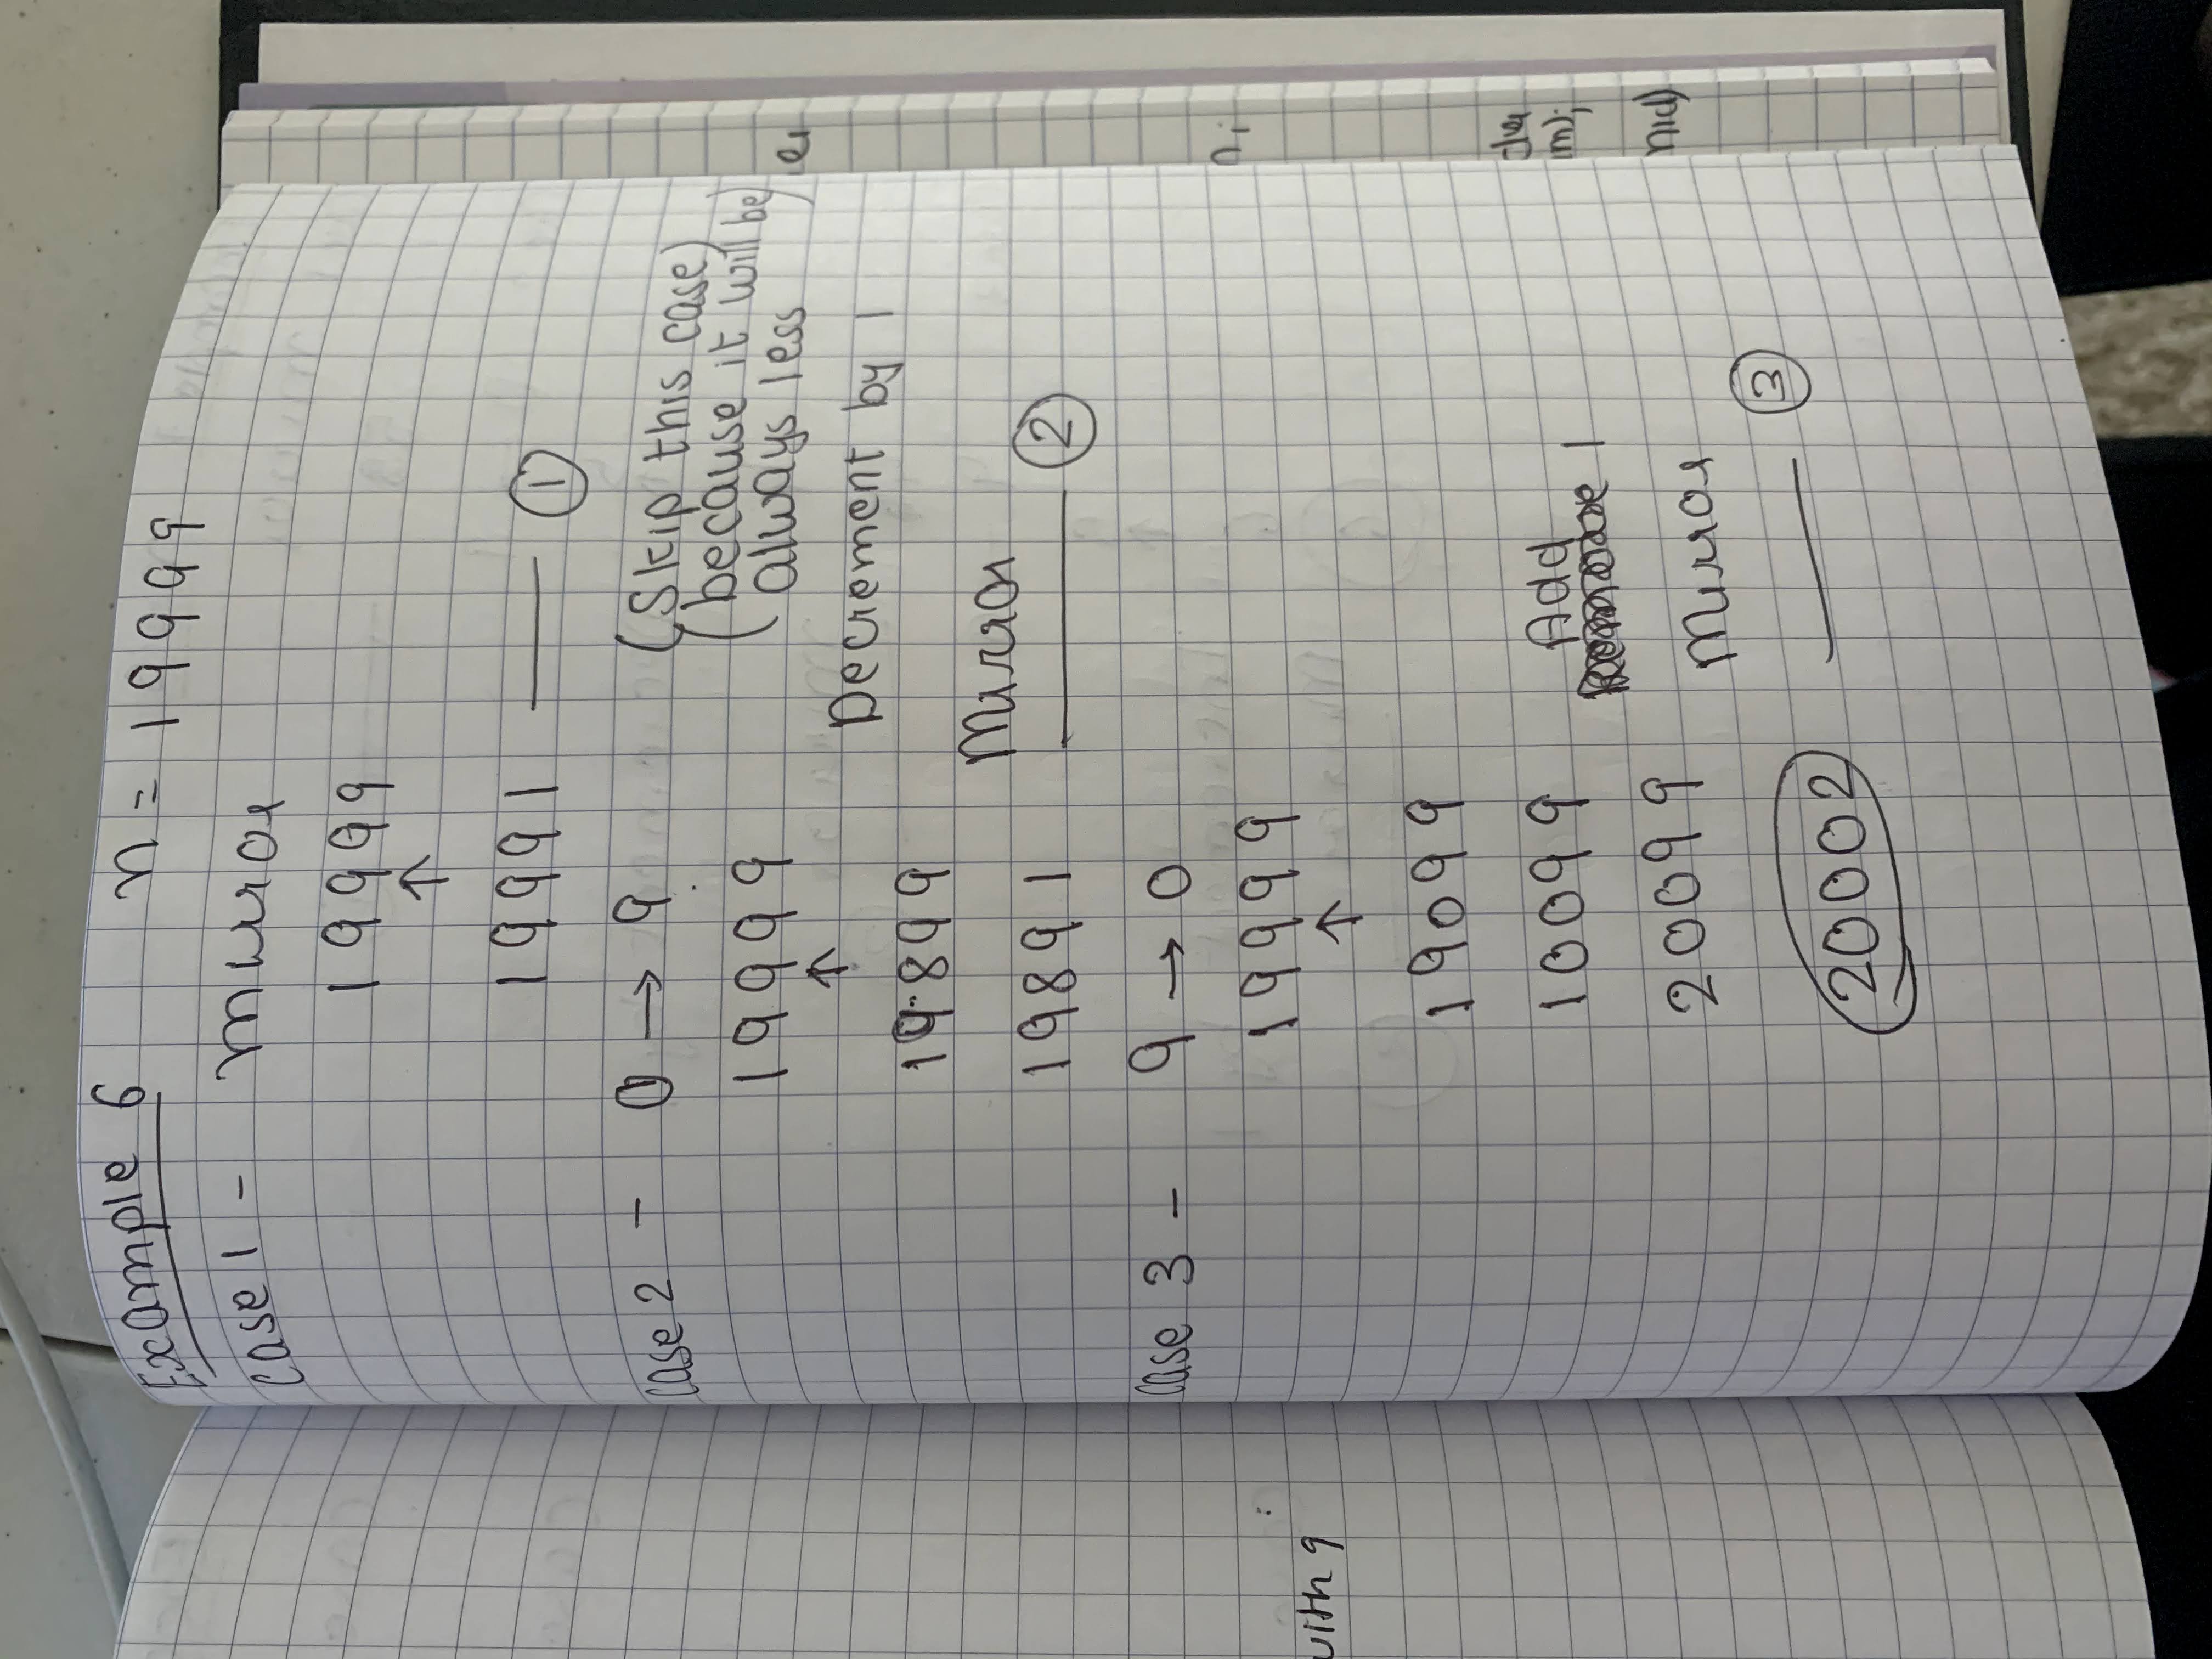 Example 6 n = 19999
Case 1 - Mirror
19999
↑
19991 —— ①
Case 2 - 0 → 9 (Skip this case)
(because it will be)
19999 always less
↑
Decrement by 1
19899
Mirror
19891 —— ②
Case 3 - 9 → 0
19999
↑
19099
10099 Add
1
20099 Mirror
20002 —— ③
with 9